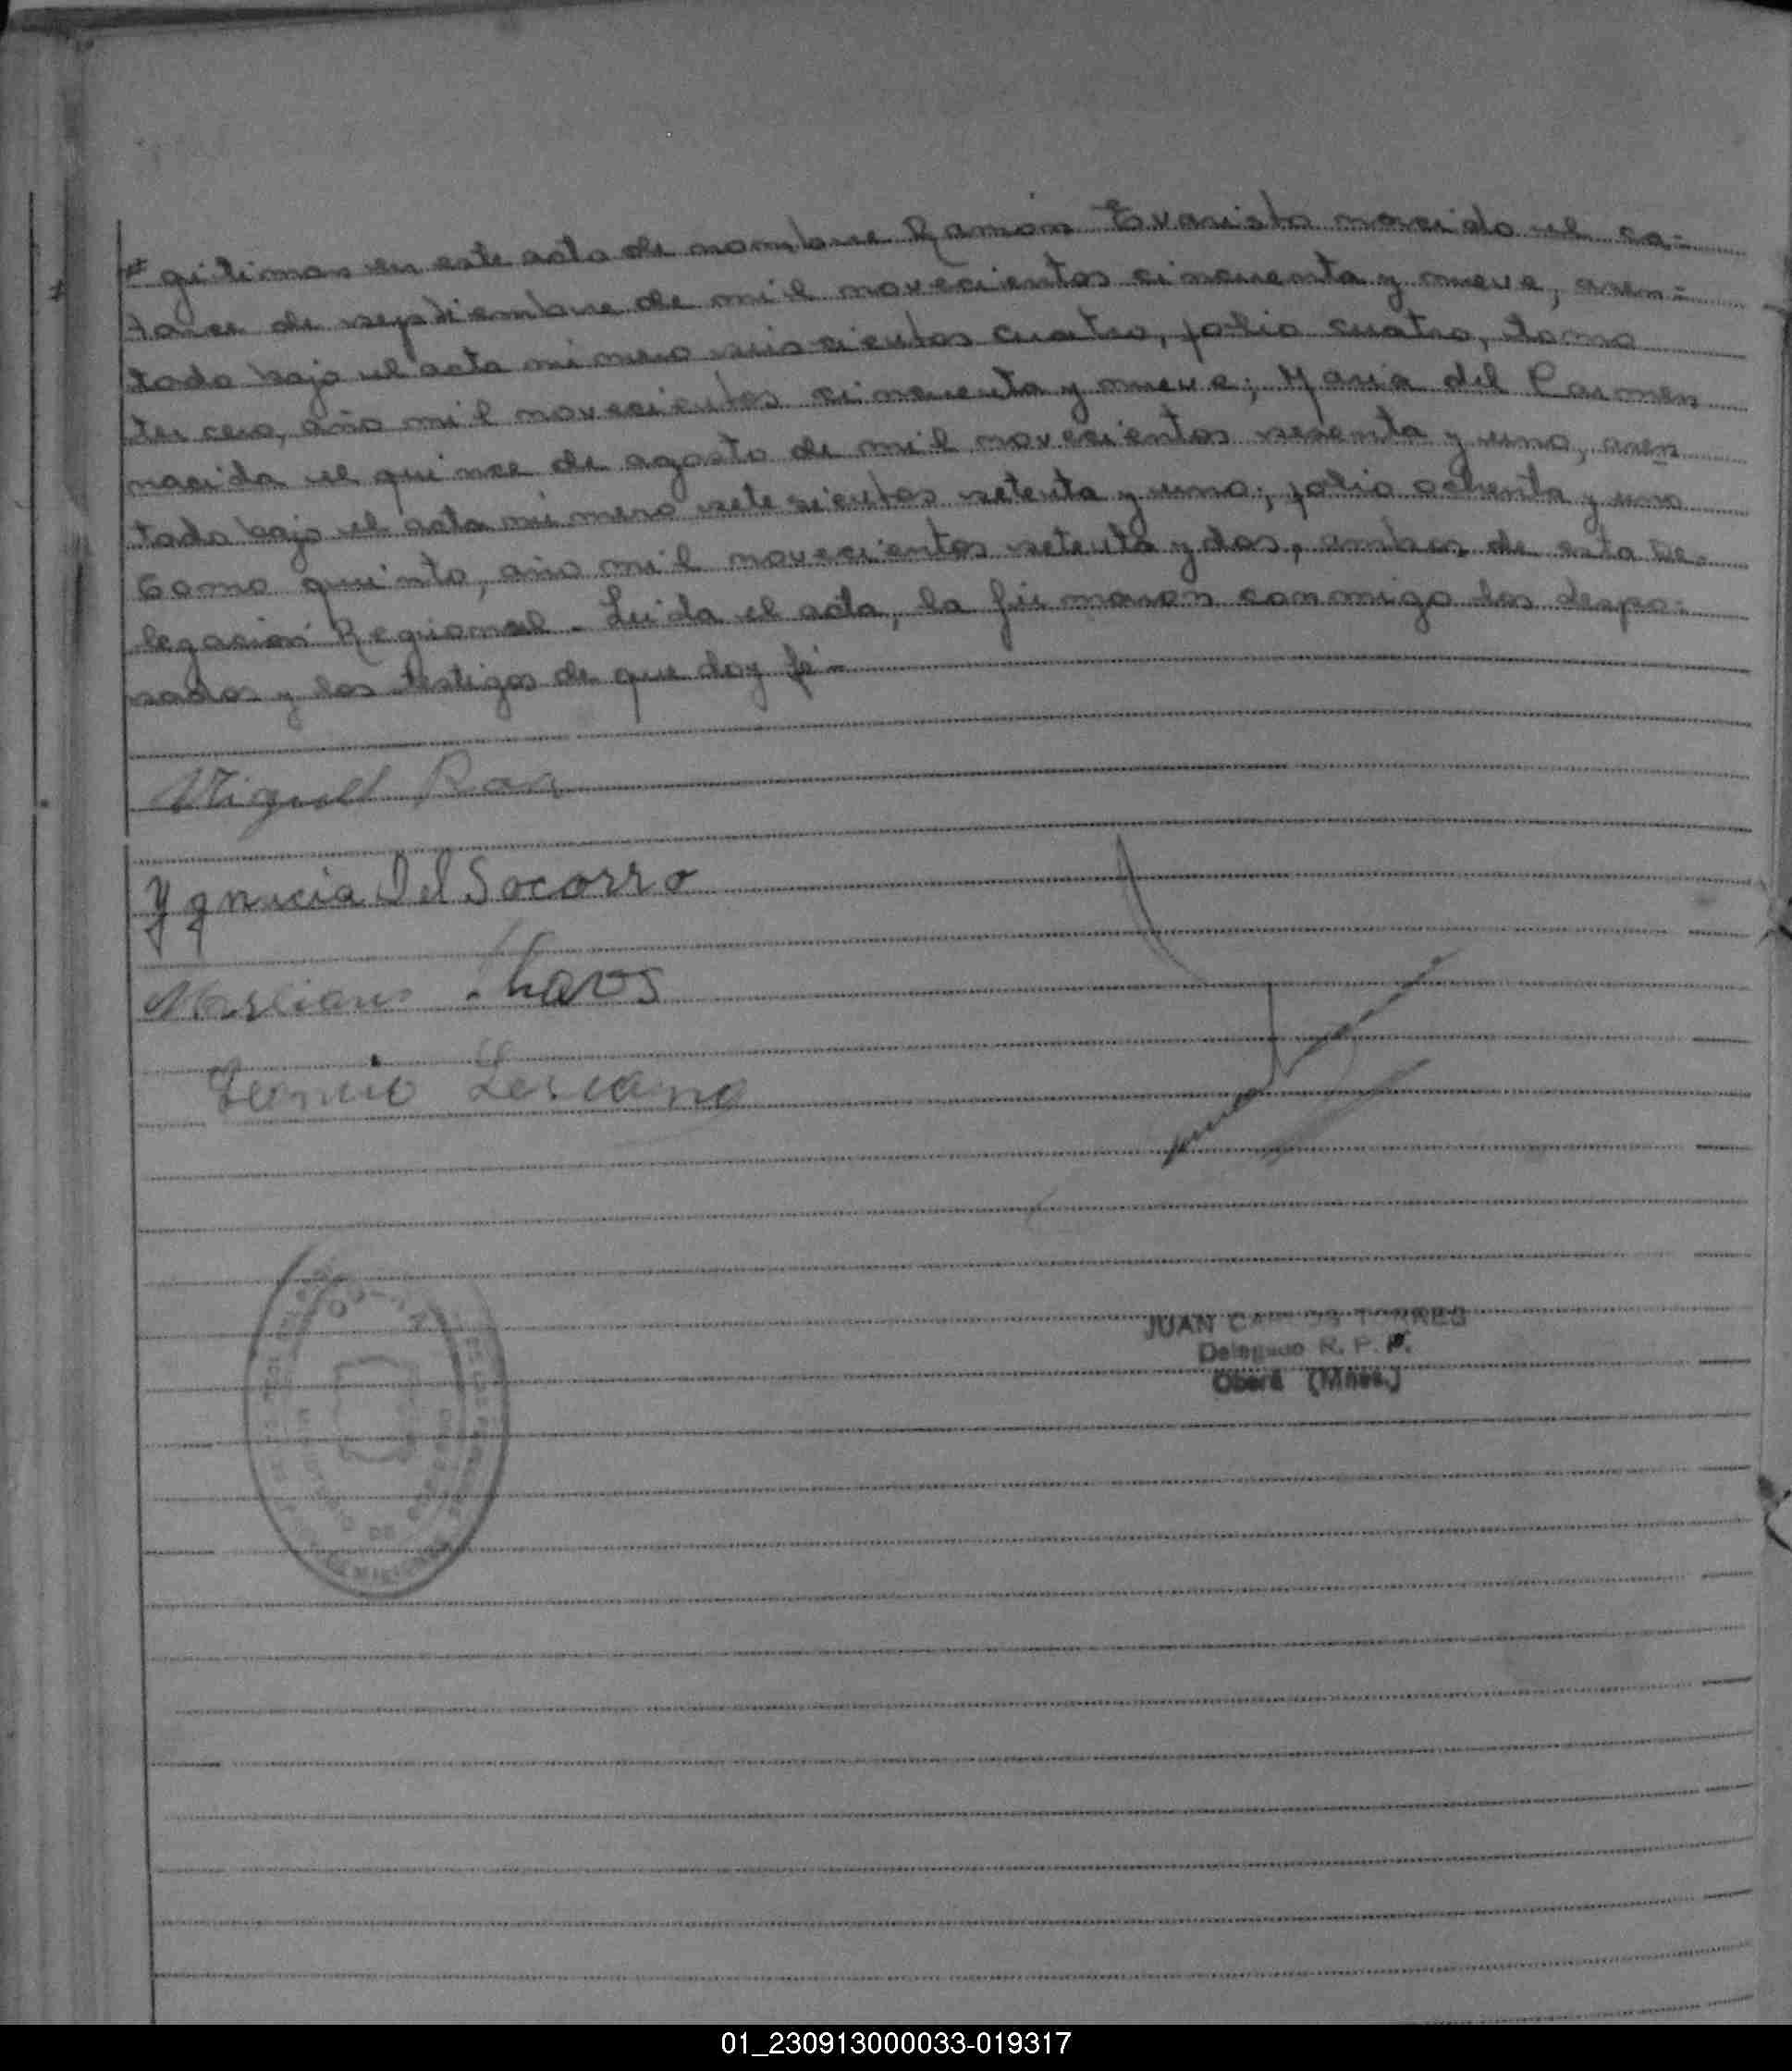 gitiman en este acto de nombre Ramón Evaristo nacido el ca-
torce de septiembre de mil novecientos cincuenta y nueve, asen-
tado bajo el acta número seiscientos cuatro, folio cuatro, tomo
tercero, año mil novecientos cincuenta y nueve; María del Carmen
nacida el quince de agosto de mil novecientos sesenta y uno, asen
tada bajo el acta número setecientos setenta y uno; folio ochenta y uno
tomo quinto, año mil novecientos setenta y dos, ambos de esta De-
legación Regional.- Leida el acta, la firmaron conmigo los despo-
sados y los testigos de que doy fé.-
Miguel
Ygnacia Del Socorro
Lescano
JUAN CARLOS TORRES
Delegado R. P. P.
Oberá (Mnes.)
01_230913000033-019317